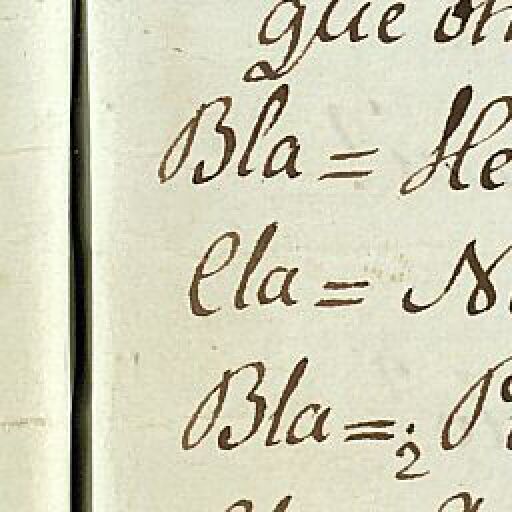 que
Bla = He
Cla = N
Bla = ¿P